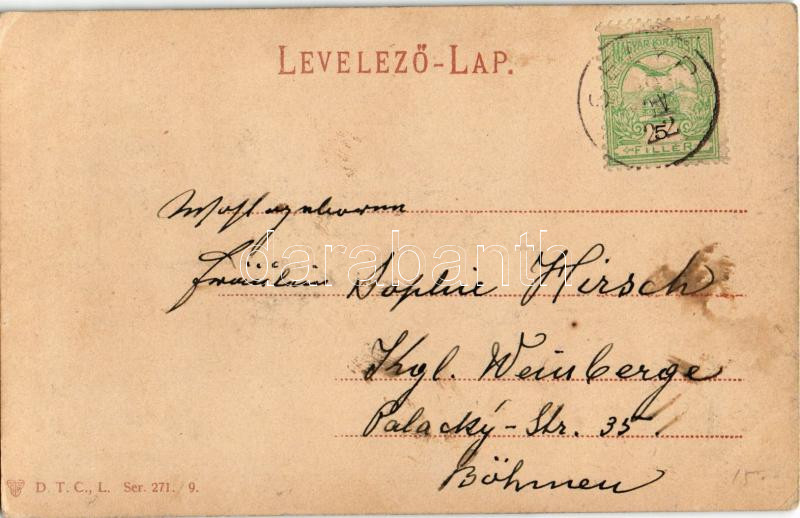 LEVELEZŐ-LAP.
MAGYAR KIR. POSTA
FILLÉR
Wohlgeboren
Fräulein Sophie Hirsch
Kgl. Weinberge
Palacký-Str. 35.
Böhmen
D. T. C., L. Ser. 271. / 9.
15.
darabanth